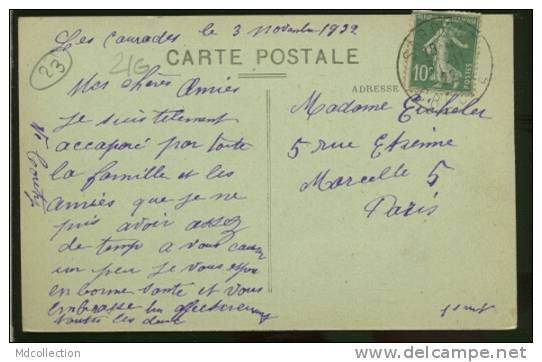 Les Courades le 3 novembre 1922
23
CARTE POSTALE
ADRESSE
10c
POSTES
Mes chères Amies
Je suis tellement
accaparé par toute
la famille et les
amies que je ne
puis avoir assez
de temps a vous causer
un peu je vous espère
en bonne santé et vous
embrasse bien affectueusement
toutes les deux
Madame Eicheler
5 rue Etienne
Marcelle 5
Paris
MdCollection
www.delcampe.net